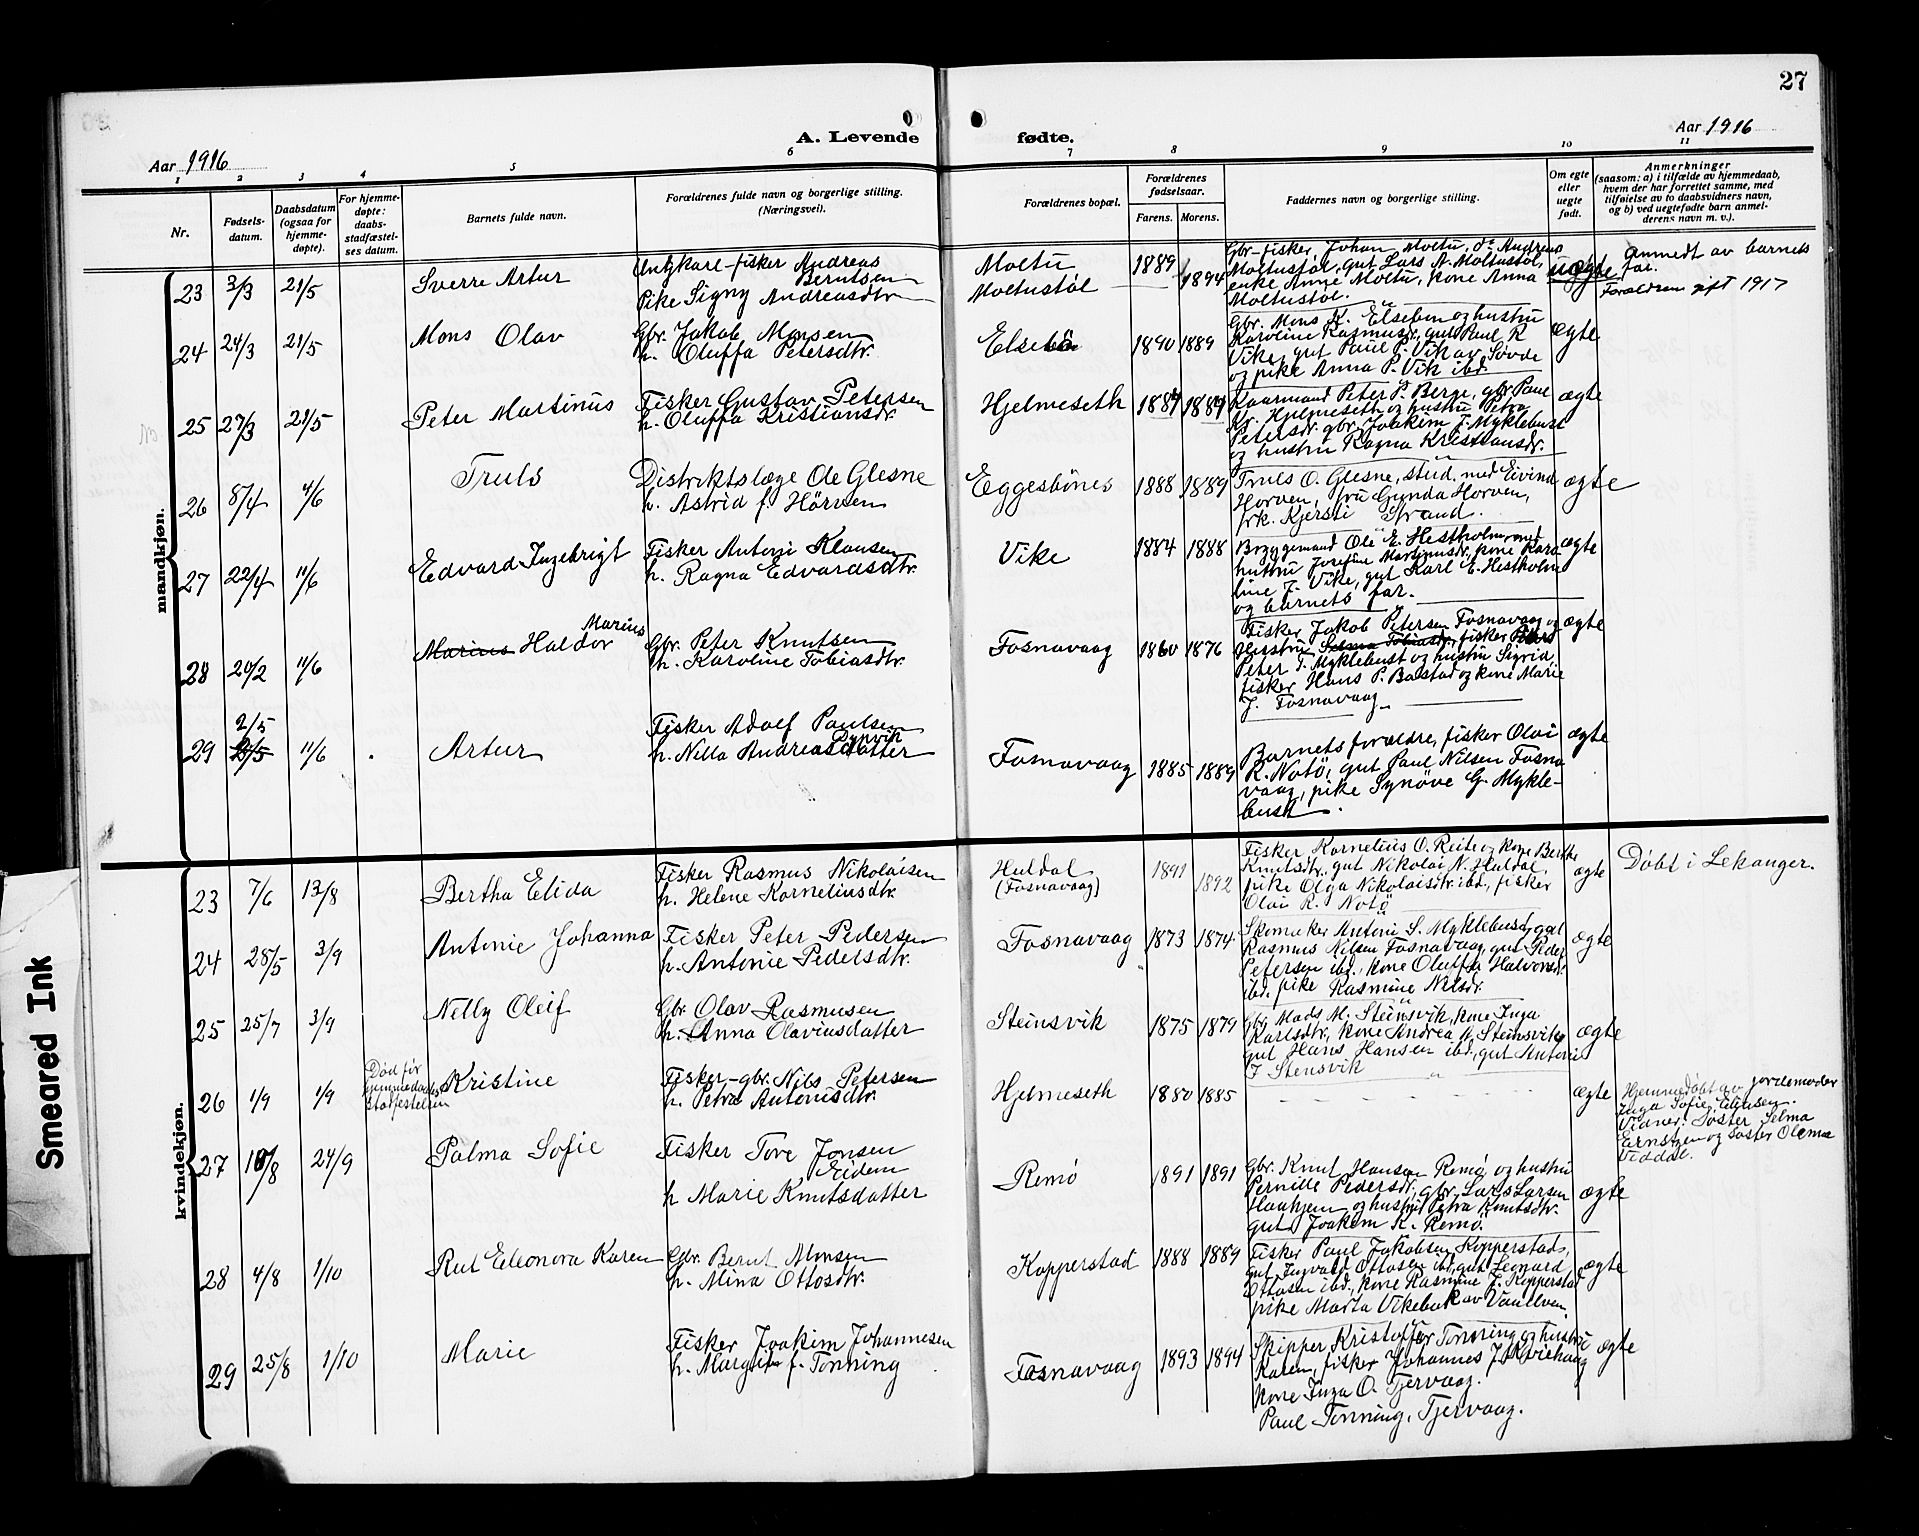 27
A. Levende fødte.
Aar 1916
Aar 1916
1 2 3 4 5 6 7 8 9 10 11
Nr.
Fødsels-
datum.
Daabsdatum
(ogsaa for
hjemme-
døpte).
For hjemme-
døpte:
daabs-
stadfæstel-
ses datum.
Barnets fulde navn.
Forældrenes fulde navn og borgerlige stilling.
(Næringsvei).
Forældrenes bopæl.
Forældrenes
fødselsaar.
Farens. Morens.
Faddernes navn og borgerlige stilling.
Om egte
eller
uegte
født.
Anmerkninger
(saasom: a) i tilfælde av hjemmedaab,
hvem der har forrettet samme, med
tilføielse av to daabsvidners navn,
og b) ved uegtefødte barn anmel-
derens navn m. v.).
mandkjøn.
23 3/3 21/5 Sverre Artur
Ungkarl-fisker Andreas
Berntsen
Pike Signy Andreasdtr
Moltu
Moltustøl
1889 1894
Gbr-fisker Johan Moltu, do Andreas
Moltustøl, gut Lars A. Moltustøl,
enke Anne Moltu, kone Anna
Moltustøl.
uægte
Anmeldt av barnets
far.
Forældren gift 1917
24 24/3 21/5 Mons Olav
Gbr. Jakob Monsen
h. Oluffa Petersdtr.
Elsebø
1890 1889
Gbr. Mons K. Elsebø og hustru
Karoline Rasmusdr, gut Paul R
Vike, gut Paul P. Vik av Søvde
og pike Anna P. Vik ibd.
ægte
25 27/3 21/5 Peter Martinus
Fisker Gustav Petersen
h. Oluffa Kristiansdr.
Hjelmeseth
1887 1889
Kaarmand Peter P. Berge, gbr Paul
Kr. Hjelmeseth og hustru Petra
Petersdr. gbr. Joakim J. Myklebust
og hustru Ragna Kristiansdr.
ægte
26 8/4 4/6 Truls
Distriktslæge Ole Glesne
h. Astrid f. Hörven
Eggesbönes
1888 1889
Truls O. Glesne, stud. med Eivind
Horven, fru Gunda Horven,
frk. Kjersti Strand.
ægte
27 22/4 11/6 Edvard Ingebrigt
Fisker Antoni Klausen
h. Ragna Edvardsdtr.
Vike
1884 1888
Bryggemand Ole E. Hestholm, med
hustru Josefine Martinusdr, kone Karo
line J. Vike, gut Karl E. Hestholm
og barnets far.
ægte
28 20/2 11/6 Marius Haldor Marius
Gbr. Peter Knutsen
h. Karoline Tobiasdtr.
Fosnavaag
1860 1876
Fisker Jakob Petersen Fosnavaag og
Hustru Selma Tobiasdr, fisker
Peter T. Myklebust og hustru Sigrid
fisker Hans P. Baastad og kone Marie
J. Fosnavaag
ægte
29 2/5 11/6 Artur
Fisker Adolf Paulsen
h. Nilla Andreasdatter
Fosnavaag
1885 1889
Barnets forældre, fisker Olai
R. Notø, gut Paul Nilsen Fosna
vaag, pike Synøve G. Mykle-
bust.
ægte
kvindekjøn.
23 7/6 13/8 Bertha Elida
Fisker Rasmus Nikolaisen
h. Helene Korneliusdtr.
Huldal
(Fosnavaag)
1891 1892
Fisker Kornelius O. Reite og kone Berthe
Knutsdtr. gut Nikolai N. Huldal,
pike Olga Nikolaisdtr. ibd., fisker
Olai R. Notø
ægte
Döbt i Lekanger.
24 28/5 3/9 Antonie Johanna
Fisker Peter Pedersen
h. Antonie Pedersdtr.
Fosnavaag
1873 1874
Skomaker Antoni S. Myklebust, gut
Rasmus Nilsen Fosnavaag, gut Peder
Petersen ibd., kone Oluffa Halvorsdr.
ibd. pike Rasmine Nilsdr.
ægte
25 25/7 3/9 Nelly Oleif
Gbr Olav Rasmusen
h. Anna Olaviusdatter
Steinsvik
1875 1879
Gbr Mads M. Steinsvik, kone Inga
Karlsdtr, kone Andrea M. Steinsvik,
gut Hans Hansen ibd., gut Antoni
J Stensvik
ægte
26 1/9 1/9
Död før
hjemmedaabs
stadfestelsen
Kristine
Fisker-gbr. Nils Petersen
h. Petra Antonisdtr.
Hjelmeseth
1880 1885
ægte
Hjemmedöbt av jordemoder
Inga Sofie Ellingsen.
Vidner: Søster Selma
Ernstzen og søster Olema
Veddal.
27 10/8 24/9 Palma Sofie
Fisker Tore Jonsen
Eidem
h Marie Knutsdatter
Remø
1891 1891
Gbr. Knut Hansen Remø og hustru
Pernille Pedersdr, gbr. Lars Larsen
Haukjem og hustru Petra Knutsdtr.
gut Joakim K. Remø.
ægte
28 4/8 1/10 Rut Eleonora Karen
Gbr. Bernt Monsen
h. Mina Ottosdtr.
Kopperstad
1888 1889
Fisker Paul Jakobsen Kopperstad,
gut Ingvald Ottosen ibd, gut Leonard
Ottosen ibd., kone Rasmine J. Kopperstad
pike Marta Vikebuk av Vanelven.
ægte
29 25/8 1/10 Marie
Fisker Joakim Johannesen
h. Margit f. Tonning
Fosnavaag
1893 1894
Skipper Kristoffer Tonning og hustru
Karen, fisker Johannes J. Kviehaug
kone Inga O. Tjervaag.
Paul Tonning, Tjervaag.
ægte
Smeared Ink